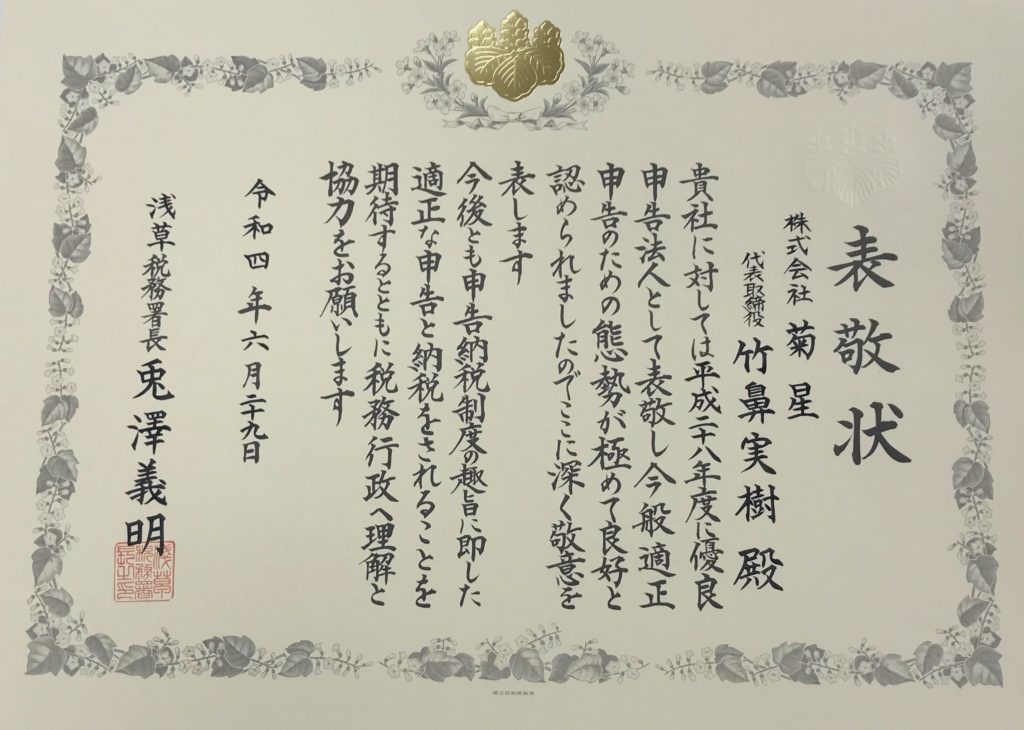 表敬状
株式会社 菊星
代表取締役 竹鼻実樹 殿
貴社に対しては平成二十八年度に優良
申告法人として表敬し今般適正
申告のための態勢が極めて良好と
認められましたのでここに深く敬意を
表します
今後とも申告納税制度の趣旨に即した
適正な申告と納税をされることを
期待するとともに税務行政へ理解と
協力をお願いします
令和四年六月二十九日
浅草税務署長 兎澤義明